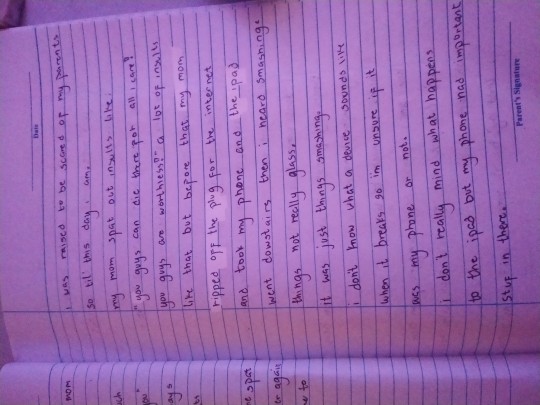 Date
i was raised to be scared of my parents
so til' this day i am.
my mom spat out insults like
"you guys can die there for all i care?
you guys are worthless?" a lot of insults
like that but before that my mom
ripped off the plug for the internet
and took my phone and the ipad
went downstairs then i heard smashing.
things not really glass,
it was just things smashing.
i don't know what a device sounds like
when it breaks so im unsure if it
was my phone or not.
i don't really mind what happens
to the ipad but my phone had important
stuf in there.
Parent's Signature
mom
you"
ne spat
er again
to